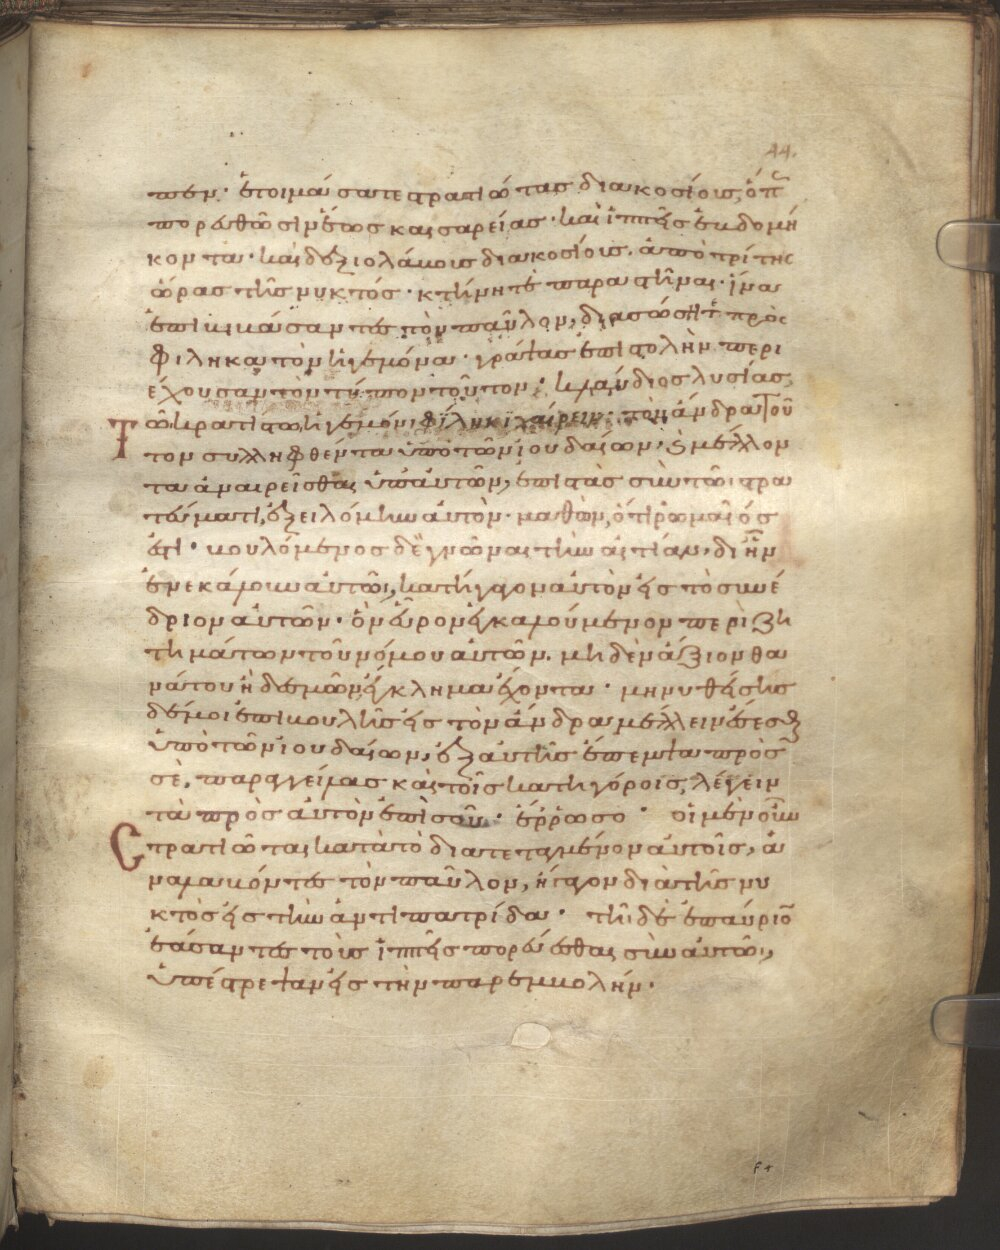 44.
πεν· ἑτοιμάσατε στρατιώτας διακοσίους, ὅπ
πορευθῶσιν ἕως καισαρείας· καὶ ἱππεῖς ἑβδομή
κοντα· καὶ δεξιολάβους διακοσίους. ἀπὸ τρίτης
ὥρας τῆς νυκτός· κτήνη τὲ παραστῆναι· ἵνα
ἐπιβιβάσαντες τὸν παῦλον, διασώσωσι πρὸς
φίληκα τὸν ἡγεμόνα· γράψας ἐπιστολὴν περι
έχουσαν τὸν τύπον τοῦτον· κλαύδιος λυσίας,
τῶ κρατίστω ἡγεμόνι φίληκι χαίρειν· τὸν ἄνδρα τοῦ
τον συλληφθέντα ὑπὸ τῶν ἰουδαίων· καὶ μέλλον
τα ἀναιρεῖσθαι ὑπ' αὐτῶν, ἐπιστὰς σὺν τῶ στρα
τεύματι, ἐξειλόμην αὐτὸν· μαθὼν, ὅτι ῥωμαῖός
ἐστι· βουλόμενος δὲ γνῶναι τὴν αἰτίαν, δι ἣν
ἐνεκάλουν αὐτῶ, κατήγαγον αὐτὸν εἰς τὸ συνέ
δριον αὐτῶν· ὃν εὗρον ἐγκαλούμενον περὶ ζη
τημάτων τοῦ νόμου αὐτῶν. μηδὲν ἄξιον θα
νάτου ἢ δεσμῶν ἔγκλημα ἔχοντα· μηνυθείσης
δέ μοι ἐπιβουλῆς εἰς τὸν ἄνδρα μέλλειν ἔσεσθαι
ὑπὸ τῶν ἰουδαίων, ἐξ αυτῆς ἔπεμψα πρὸς
σὲ, παραγγείλας καὶ τοῖς κατηγόροις, λέγειν
τὰ πρὸς αὐτὸν ἐπὶ σοῦ· ἔρρωσο· οἱ μὲν οὖν
στρατιῶται κατὰ τὸ διατεταγμένον αὐτοῖς, ἀ
ναλαβόντες τὸν παῦλον, ἤγαγον διὰ τῆς νυ
κτὸς εἰς τὴν ἀντιπατρίδα· τῆ δὲ ἐπαύριον
ἐάσαντες τοὺς ἱππεῖς πορεύεσθαι σὺν αὐτῶ,
ὑπέστρεψαν εἰς τὴν παρεμβολήν·